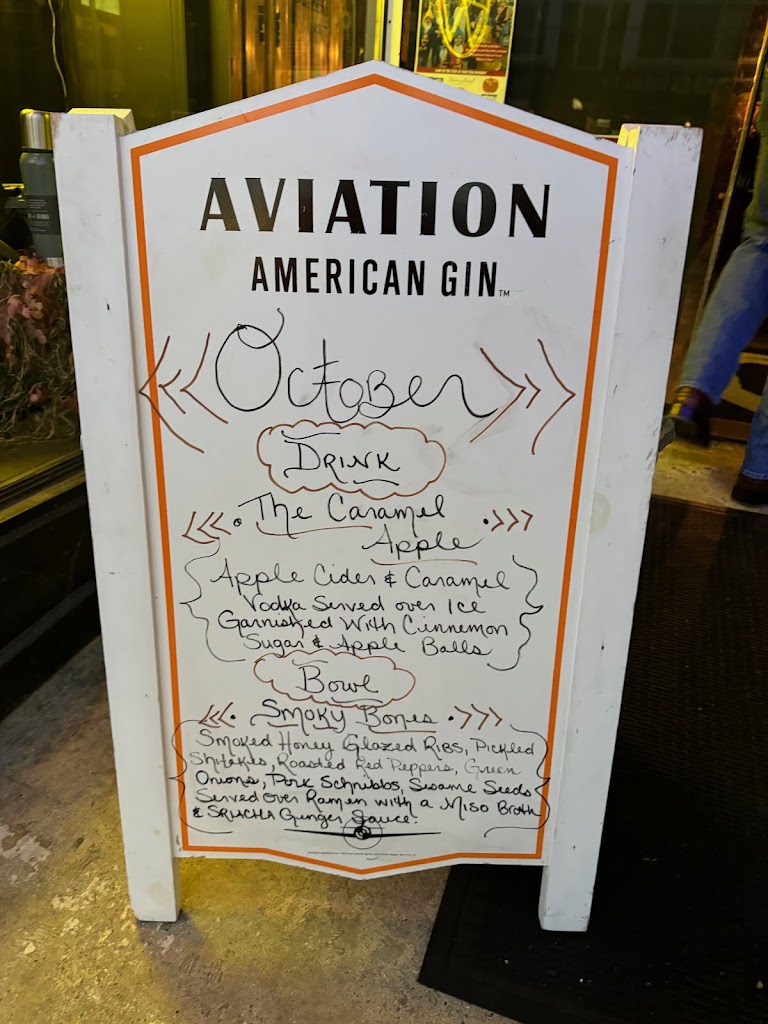 AVIATION
AMERICAN GIN™
October
Drink
The Caramel
Apple
Apple Cider & Caramel
Vodka Served over Ice
Garnished With Cinnemon
Sugar & Apple Balls
Bowl
Smoky Bones
Smoked Honey Glazed Ribs, Pickled
Shitakes, Roasted Red Peppers, Green
Onions, Pork Schnibbs, Sesame Seeds
Served over Ramen with a Miso Broth
& SRIACHA Ginger Sauce.